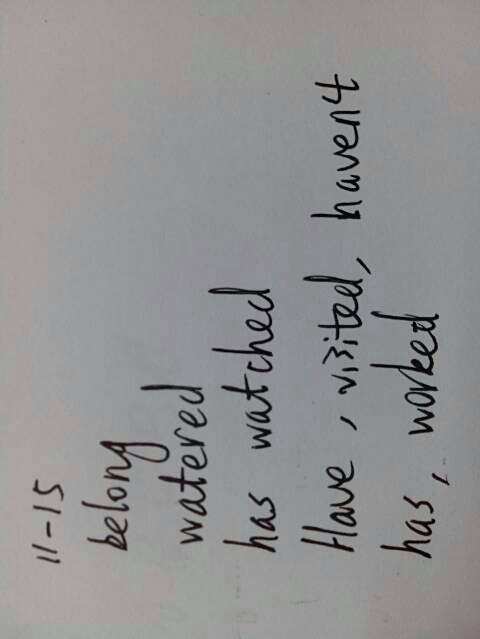 11-15
belong
watered
has watched
Have, visited, haven't
has, worked